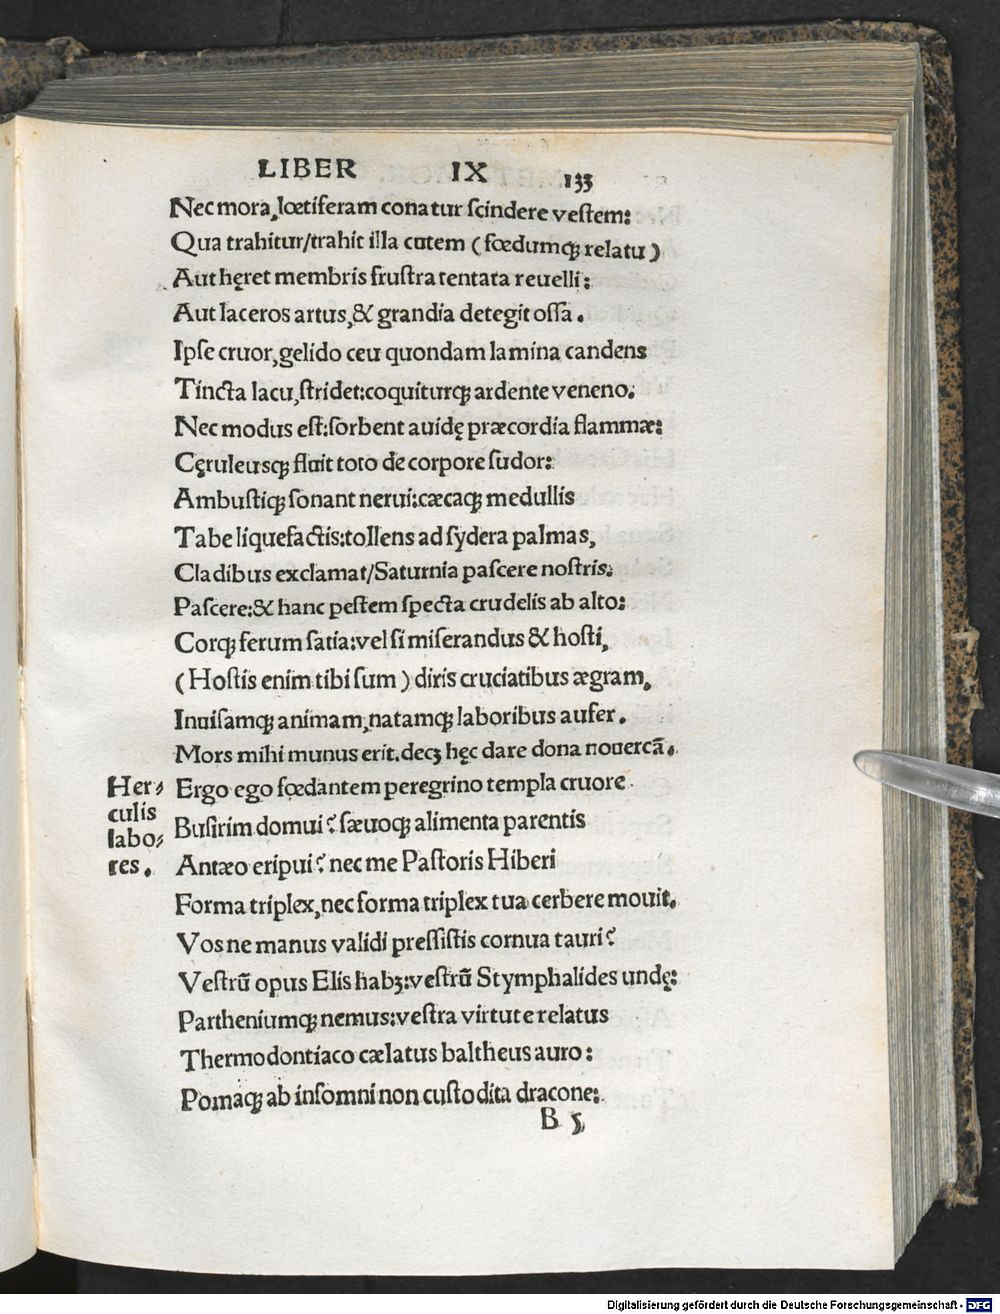 LIBER IX 133
Nec mora, lœtiferam conatur ſcindere veſtem:
Qua trahitur/trahit illa cutem (fœdumqꝫ relatu)
Aut hęret membris fruſtra tentata reuelli:
Aut laceros artus, & grandia detegit oſſa.
Ipſe cruor, gelido ceu quondam lamina candens
Tincta lacu, ſtridet: coquiturqꝫ ardente veneno.
Nec modus eſt: ſorbent auidę præcordia flammæ:
Cęruleusqꝫ fluit toto de corpore ſudor:
Ambuſtiqꝫ ſonant nerui: cæcaqꝫ medullis
Tabe liquefactis: tollens ad ſydera palmas,
Cladibus exclamat/Saturnia paſcere noſtris.
Paſcere: & hanc peſtem ſpecta crudelis ab alto:
Corqꝫ ferum ſatia: vel ſi miſerandus & hoſti,
(Hoſtis enim tibi ſum) diris cruciatibus ægram,
Inuiſamqꝫ animam, natamqꝫ laboribus aufer.
Mors mihi munus erit. decꝫ hęc dare dona nouercā.
Her⸗
culis
labo⸗
res.
Ergo ego fœdantem peregrino templa cruore
Buſirim domui? ſæuoqꝫ alimenta parentis
Antæo eripui? nec me Paſtoris Hiberi
Forma triplex, nec forma triplex tua cerbere mouit.
Vos ne manus validi preſſiſtis cornua tauri?
Veſtrū opus Elis habꝫ: veſtrū Stymphalides undę:
Partheniumqꝫ nemus: veſtra virtute relatus
Thermodontiaco cælatus baltheus auro:
Pomaqꝫ ab inſomni non cuſtodita dracone:
B 5
Digitalisierung gefördert durch die Deutsche Forschungsgemeinschaft - DFG